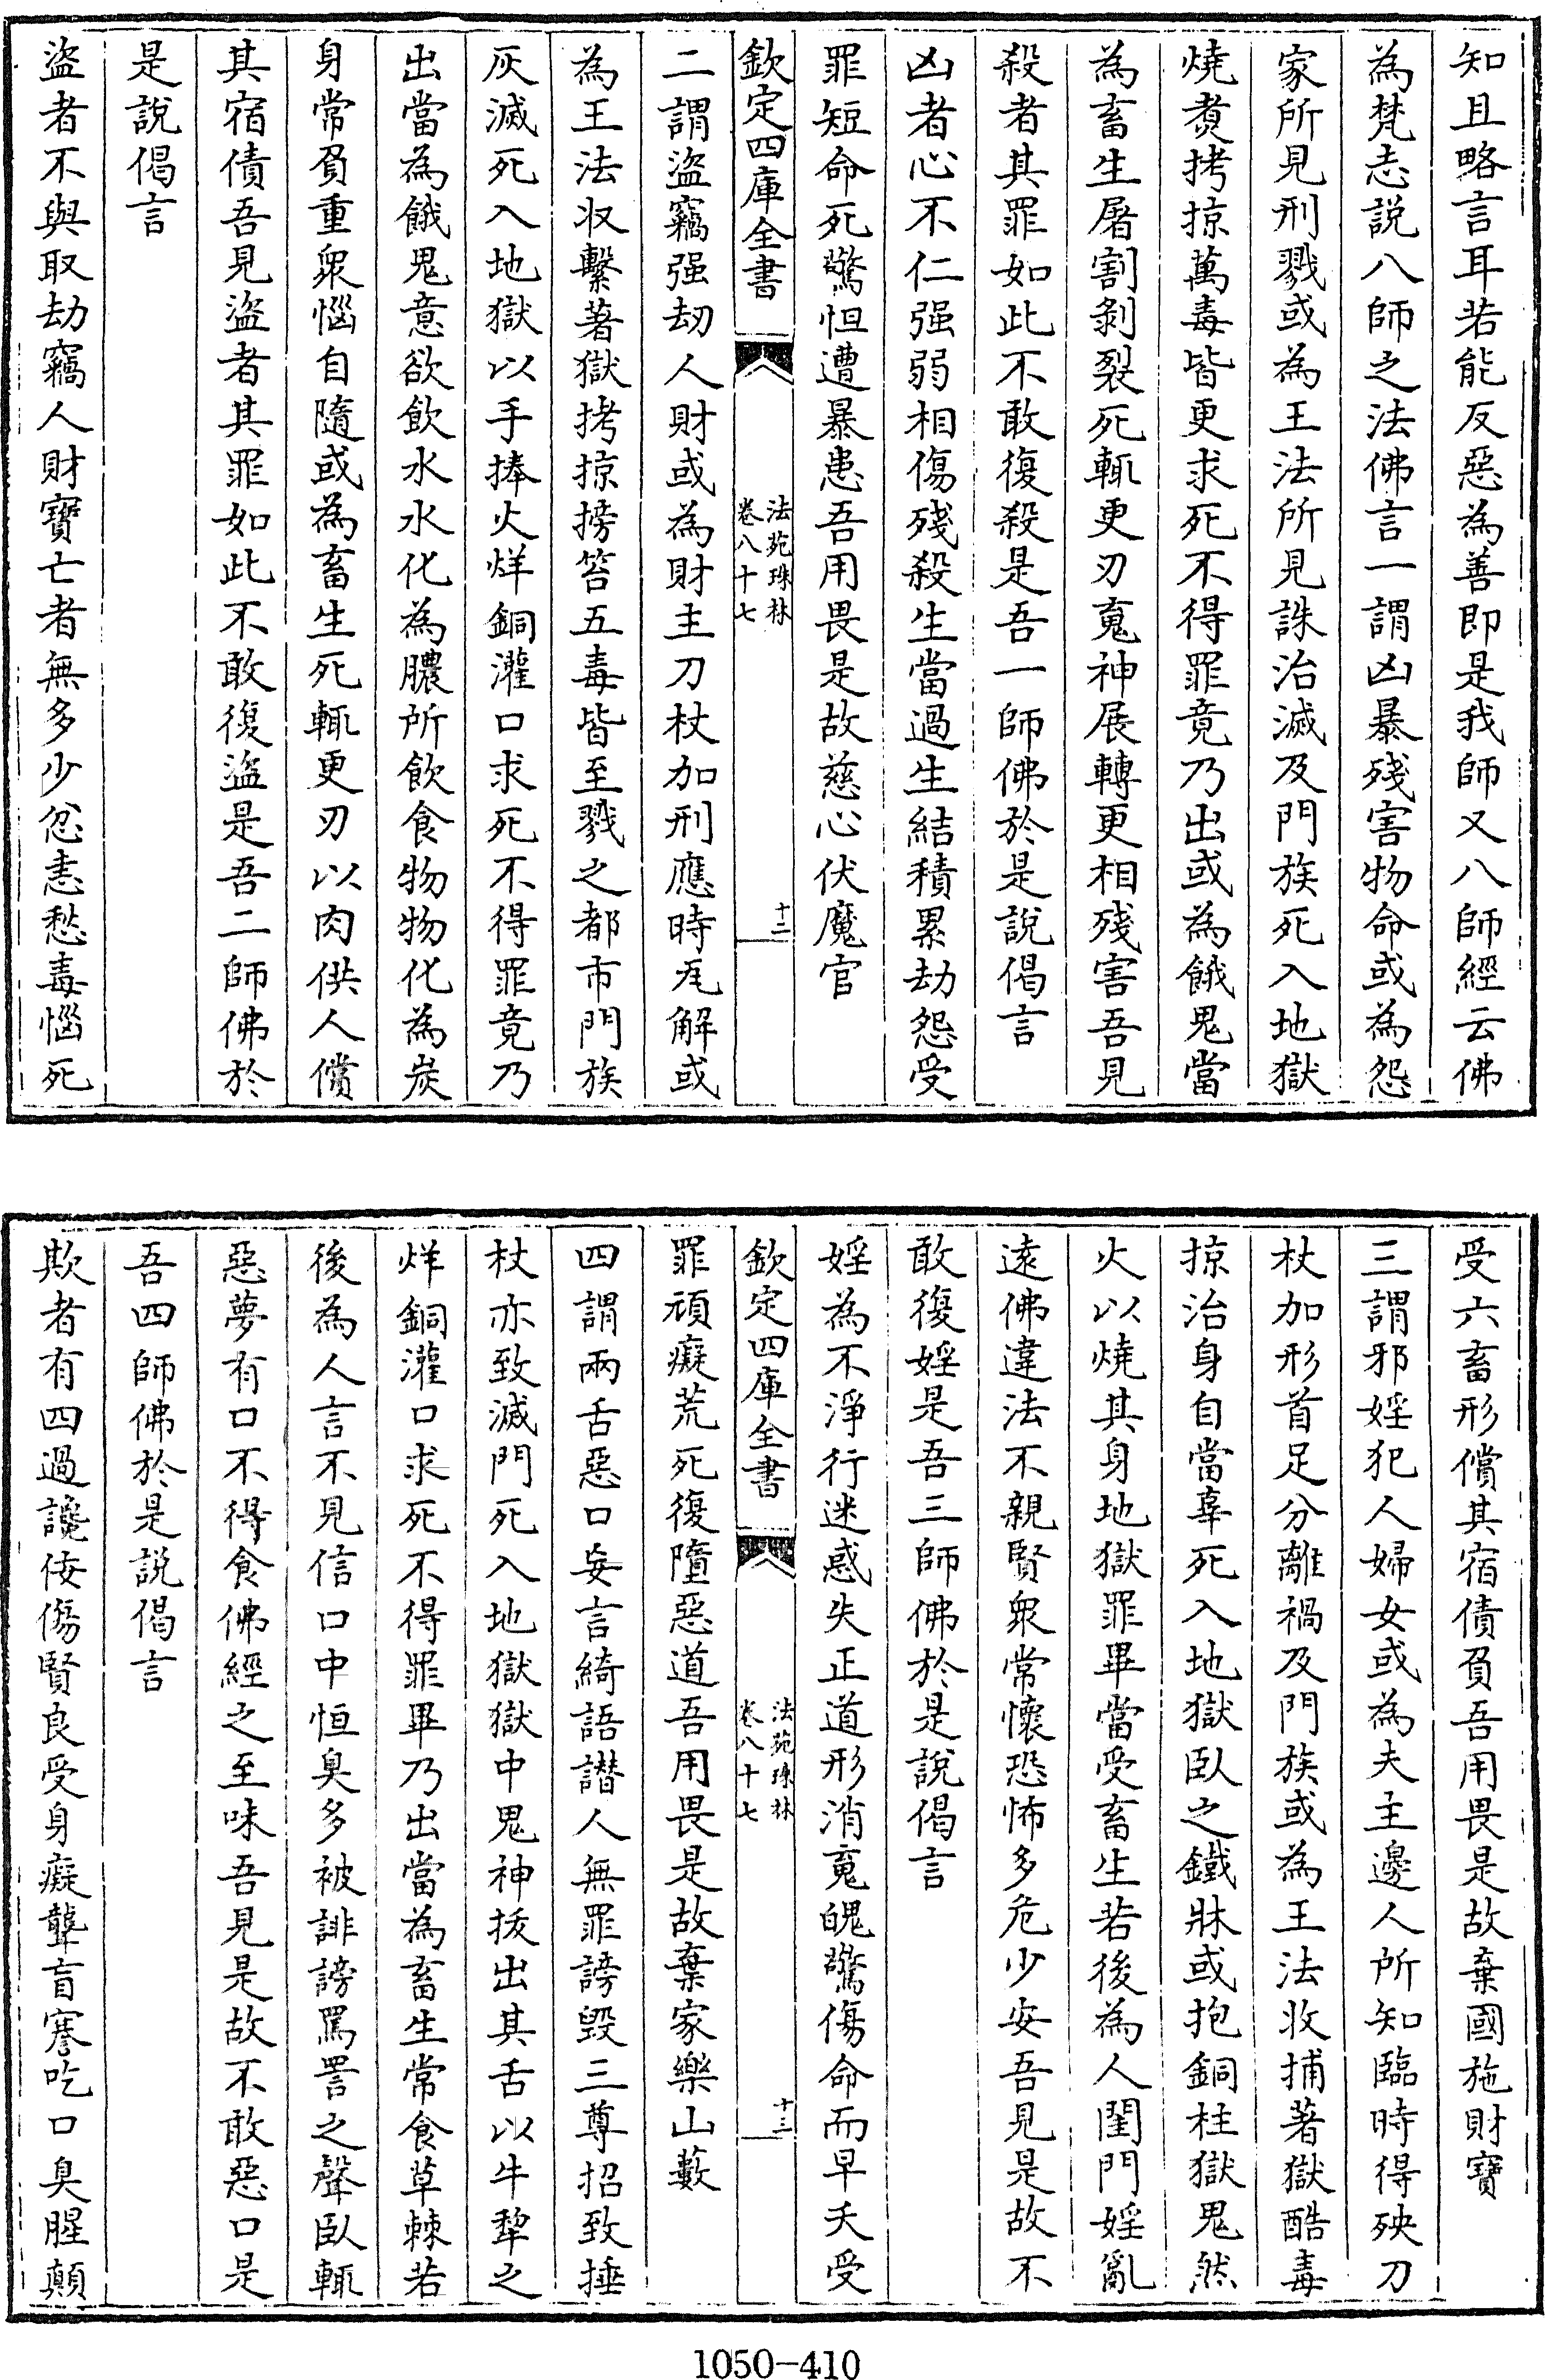 知且略言耳若能反惡為善即是我師又八師經云佛
為梵志說八師之法佛言一謂凶暴殘害物命或為怨
家所見刑戮或為王法所見誅治滅及門族死入地獄
燒煑拷掠萬毒皆更求死不得罪竟乃出或為餓鬼當
為畜生屠割剝裂死輒更刃䰟神展轉更相殘害吾見
殺者其罪如此不敢復殺是吾一師佛於是說偈言
凶者心不仁强弱相傷殘殺生當過生結積累劫怨受
罪短命死驚怛遭暴患吾用畏是故慈心伏魔官
欽定四庫全書
法苑珠林
卷八十七
十二
二謂盜竊强刼人財或為財主刀杖加刑應時瓦解或
為王法收繫著獄拷掠搒笞五毒皆至戮之都市門族
灰滅死入地獄以手捧火烊銅灌口求死不得罪竟乃
出當為餓鬼意欲飲水水化為膿所飲食物物化為炭
身常負重衆惱自隨或為畜生死輒更刃以肉供人償
其宿債吾見盜者其罪如此不敢復盜是吾二師佛於
是說偈言
盜者不與取劫竊人財寶亡者無多少忿恚愁毒惱死
受六畜形償其宿債負吾用畏是故棄國施財寶
三謂邪婬犯人婦女或為夫主邊人所知臨時得殃刀
杖加形首足分離禍及門族或為王法收捕著獄酷毒
掠治身自當辜死入地獄臥之鐵牀或抱銅柱獄鬼然
火以燒其身地獄罪畢當受畜生若後為人閨門婬亂
遠佛違法不親賢衆常懷恐怖多危少安吾見是故不
敢復婬是吾三師佛於是說偈言
婬為不淨行迷惑失正道形消䰟魄驚傷命而早夭受
欽定四庫全書
法苑珠林
卷八十七
十三
罪頑癡荒死復墮惡道吾用畏是故棄家樂山藪
四謂兩舌惡口妄言綺語譖人無罪謗毀三尊招致捶
杖亦致滅門死入地獄獄中鬼神拔出其舌以牛犂之
烊銅灌口求死不得罪畢乃出當為畜生常食草棘若
後為人言不見信口中恒臭多被誹謗罵詈之聲臥輒
惡夢有口不得食佛經之至味吾見是故不敢惡口是
吾四師佛於是說偈言
欺者有四過讒佞傷賢良受身癡聾盲謇吃口臭腥顛
1050-410